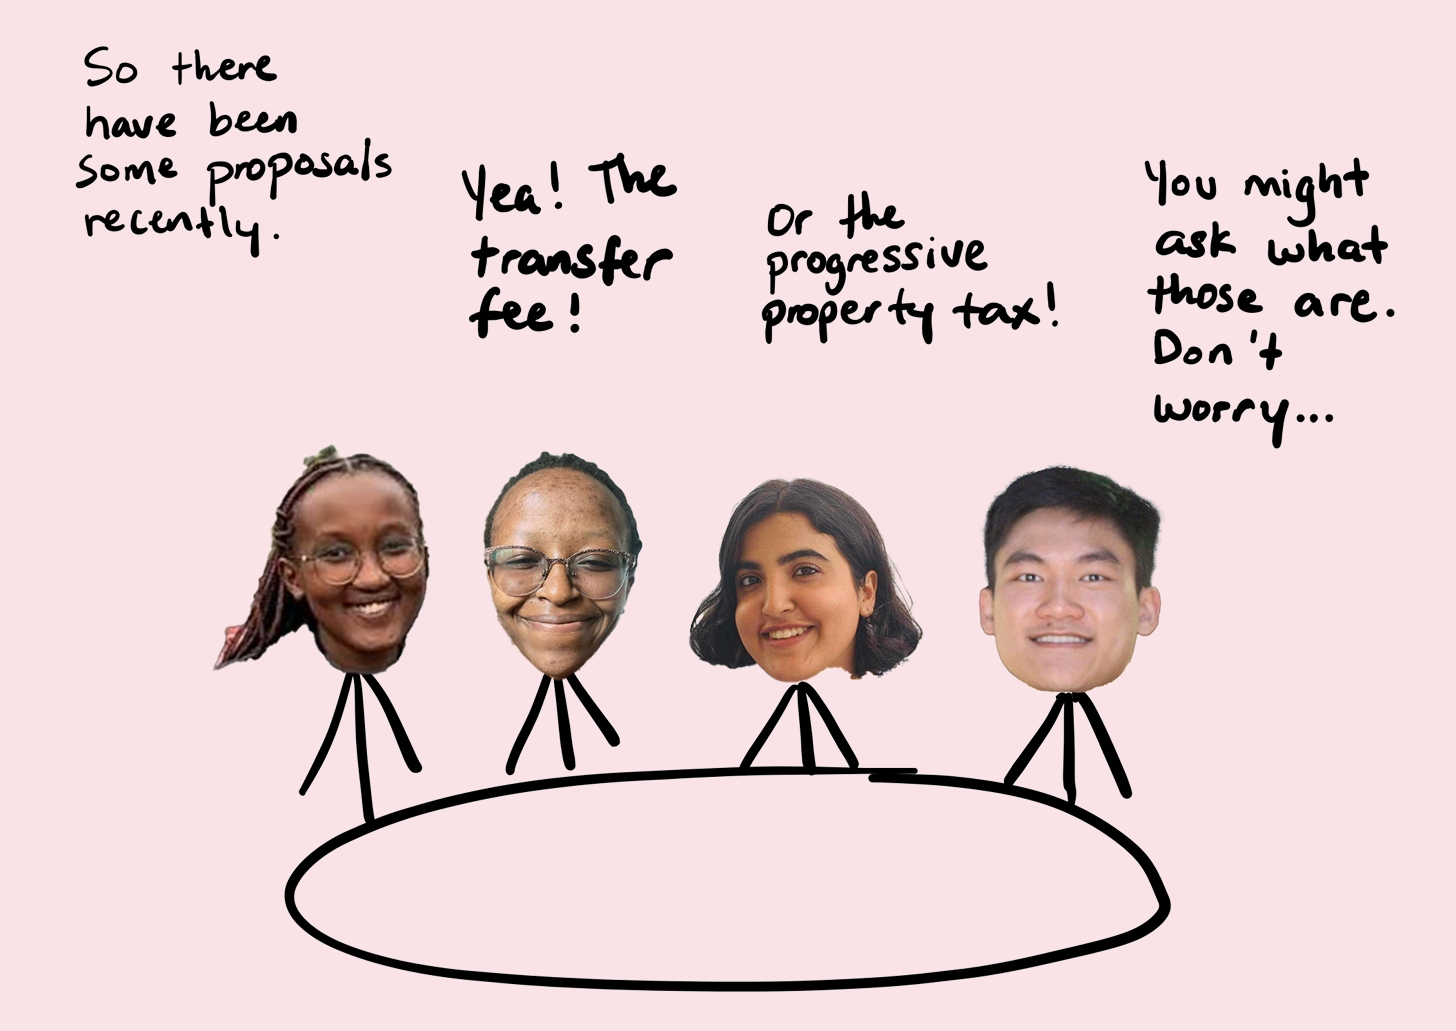 So there
have been
some proposals
recently.
Yea! The
transfer
fee!
Or the
progressive
property tax!
You might
ask what
those are.
Don't
worry...